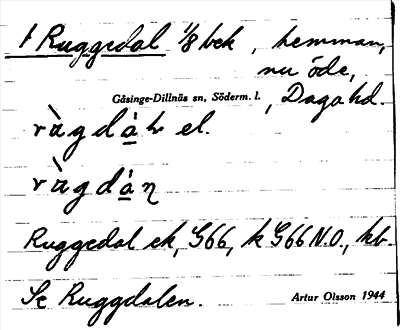 1 Ruggedal 1/8 bek, hemman,
nu öde,
Gåsinge-Dillnäs sn, Söderm. l., Daga hd.
rùgdàl el.
rùgdàn
Ruggedal ek, G66, k G66 N.O., kb.
Se Ruggdalen.
Artur Olsson 1944